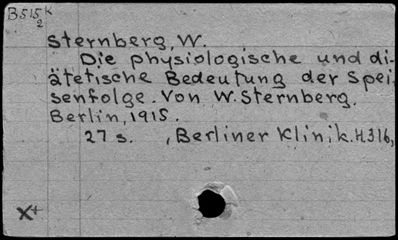 B515K
2
Sternberg, W.
Die physiologische und di-
ätetische Bedeutung der Spei-
senfolge. Von W. Sternberg.
Berlin, 1915.
27 s. , Berliner Klinik. H 316,
X+